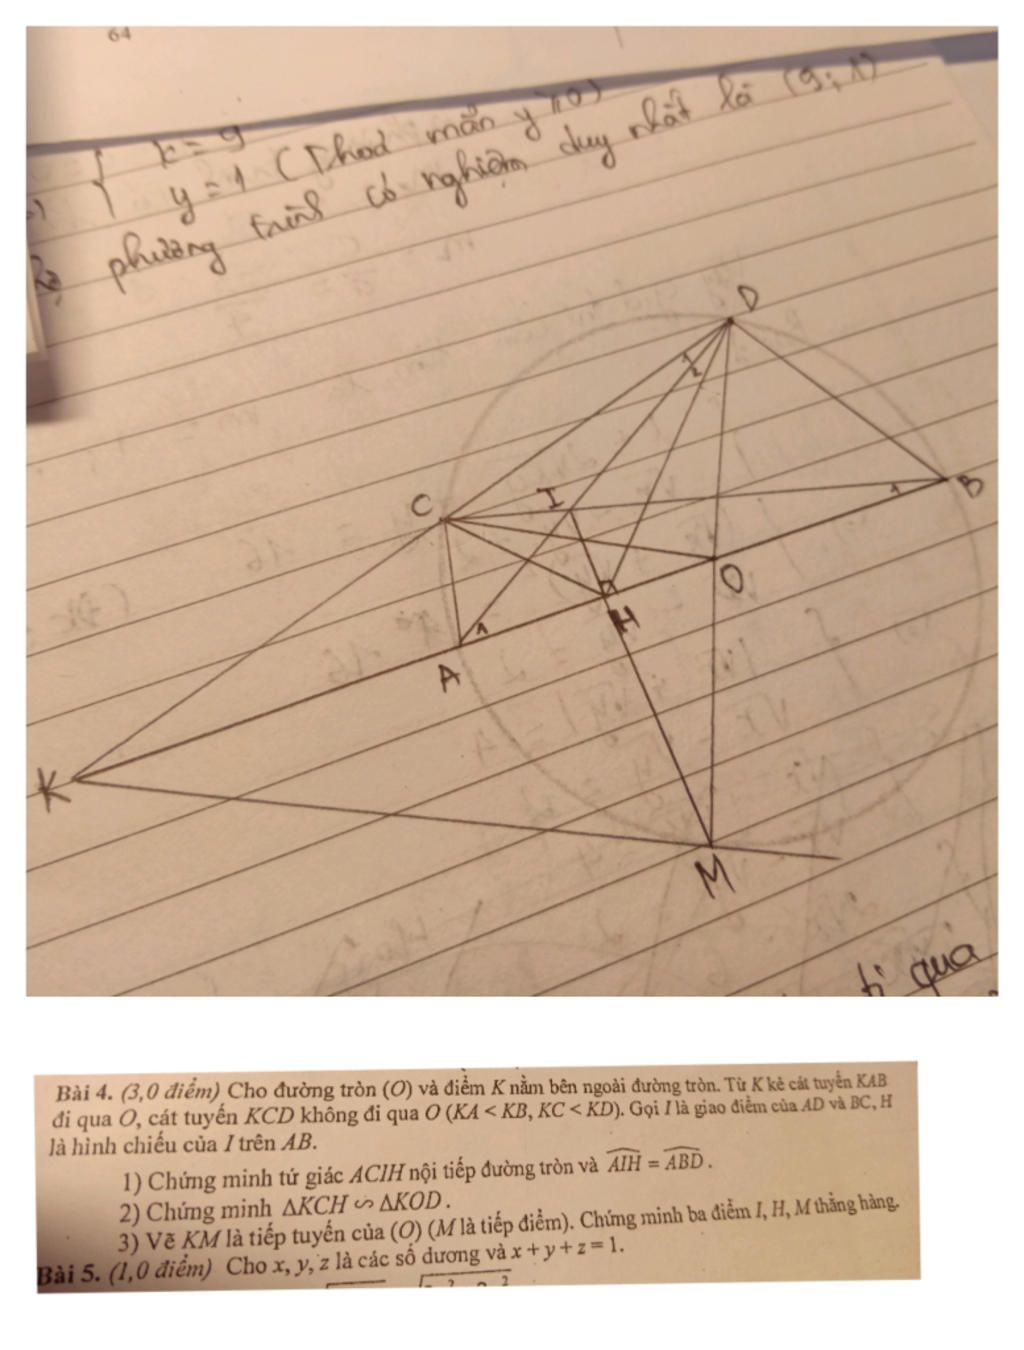 64
x = 9
y = 1 (Thoả mãn y ≥ 0)
phương trình có nghiệm duy nhất là (9; 1)
D
1
2
C
I
1
B
O
H
1
A
K
M
quá
Bài 4. (3,0 điểm) Cho đường tròn (O) và điểm K nằm bên ngoài đường tròn. Từ K kẻ cát tuyến KAB
đi qua O, cát tuyến KCD không đi qua O (KA < KB, KC < KD). Gọi I là giao điểm của AD và BC, H
là hình chiếu của I trên AB.
1) Chứng minh tứ giác ACIH nội tiếp đường tròn và \widehat{AIH} = \widehat{ABD}.
2) Chứng minh ΔKCH ∽ ΔKOD.
3) Vẽ KM là tiếp tuyến của (O) (M là tiếp điểm). Chứng minh ba điểm I, H, M thẳng hàng.
Bài 5. (1,0 điểm) Cho x, y, z là các số dương và x + y + z = 1.